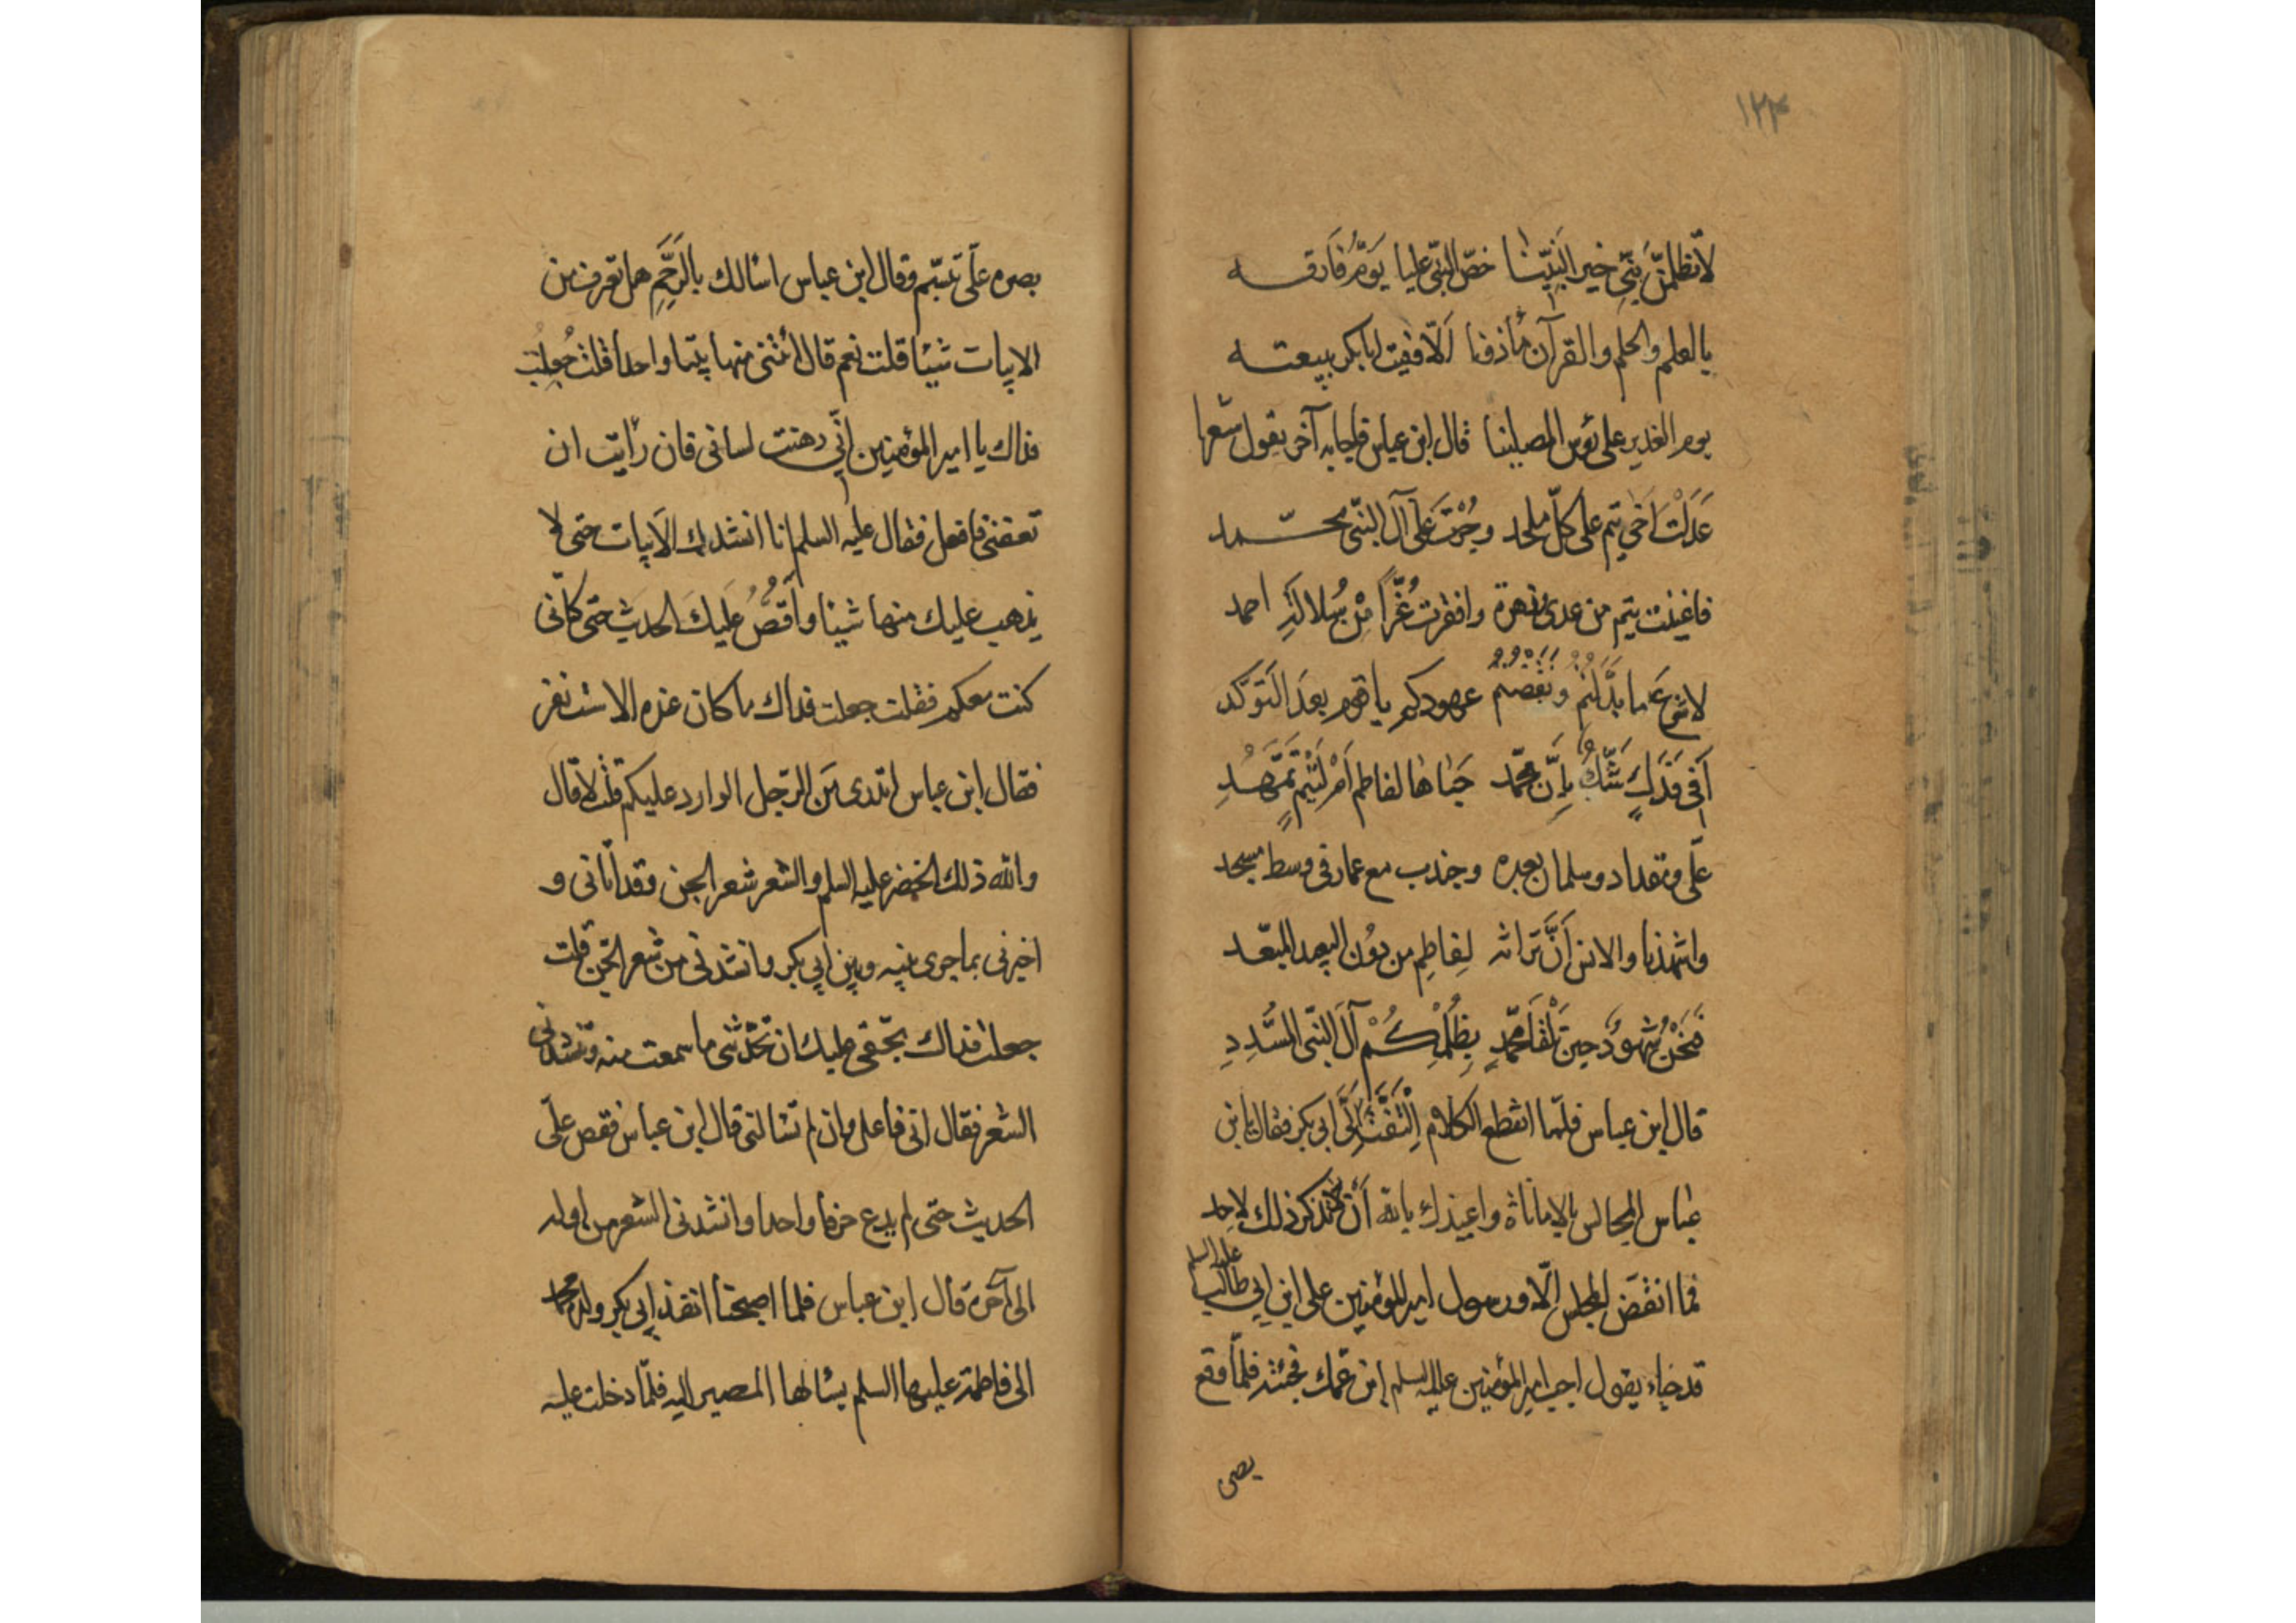 ١٢٣
لا تظلمنّ بنی خیر النبیّنا خصّ النبّی علیا یَومَ فَارقـــه
بالعلم والحلم والقرآن مأذفنا اَلّا ففیت ابابکر ببیعتـــه
یوم الغدیر علی بؤس المصلینا قال ابن عباس فاجابه آخر یقول شعرا
عَدَلْتَ اَخی تیم علی کلّ ملحد وجُرْتَ عَلی آل النبّی محـــمد
فاغنیت تیم من عدی زهرة وافقرت غُرّاً مِنْ سُلالَةِ احمد
لا شَرعَ ما بدَّلتُم ونقضتُم عهودکم یا قوم بعدَ التَوکّد
اَفی فَدَكٍ شَكٌّ بِاَنَّ محمّد حباها لفاطم اَمْ لتَیْم تمهّـدِ
علّی ومقداد وسلمان بعده وجندب مع عمار فی وسط مسجد
واشهدنا والانس اَنَّ تَراثه لِفاطِم من دُون البعید المبعّـد
فَنَحْنُ شُهودٌ حین تلْقَا محمّدٍ بِظُلْمِکُـمْ آلَ النبّی المسَّدِدِ
قال ابن عباس فلمّا انقطع الکلام اِلْتَفَتَ اِلَّی ابی بکر فقال یابن
عباس المجالس بالاماناة واعیذك بالله اَنْ تذکر ذلك لاحد
فما انقَضَ المجلس الّا ورسول امیر المؤمنین علی ابن ابی طالب علیه السلم
قد جاء یقول اجب امیر المؤمنین علیه السلم ابن عمّك فجئته فلمّا وقع
بصره
بصره علَّی تبسّم وقال ابن عباس اسالك بالرَحِمِ هل تعرف من
الابیات شیئا قلت نعم قال انشدنی منها بیتا واحدا قلت جُعِلتُ
فداك یا امیر المؤمنین انّی دهنت لسانی فان رأیت ان
تعفنی فافعل فقال علیه السلم انا انشدك الابیات حتی لا
یذهب علیك منها شیئا واَقُصُّ عَلیكَ الحدیث حتی کانّی
کنت معکم فقلت جعلت فداك ما کان عذه الا شت نفر
فقال ابن عباس اتدری مَن الرّجل الوارد علیکم قلت لا قال
والله ذلك الخضر علیه السلم والشعر شعر الجن وقد اتانی و
اخبرنی بما جری بینه وبین ابی بکر وانشدنی من شعر الجّن قلت
جعلت فداك بحّقی علیك ان تحدّثنی ما سمعت منه وتنشدنی
الشعر فقال انی فاعل وان لم تسالنی قال ابن عباس فقص علّی
الحدیث حتی لم یدع حرفا واحدا وانشدنی الشعر من اوله
الی آخره قال ابن عباس فلما اصبحنا انفذ ابی بکر ولده محمّد
الی فاطمة علیها السلم یسالها المصیر الیه فلمّا دخلت علیه